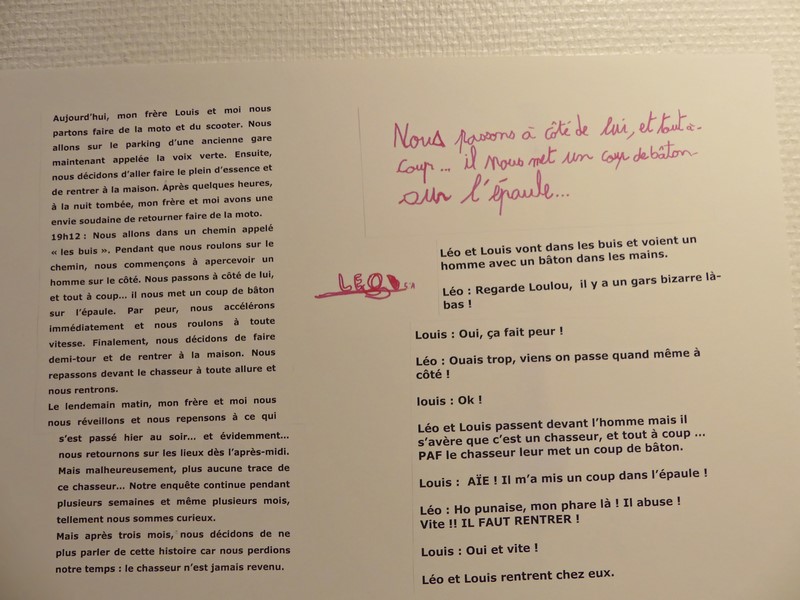 Aujourd'hui, mon frère Louis et moi nous
partons faire de la moto et du scooter. Nous
allons sur le parking d'une ancienne gare
maintenant appelée la voix verte. Ensuite,
nous décidons d'aller faire le plein d'essence et
de rentrer à la maison. Après quelques heures,
à la nuit tombée, mon frère et moi avons une
envie soudaine de retourner faire de la moto.
19h12 : Nous allons dans un chemin appelé
« les buis ». Pendant que nous roulons sur le
chemin, nous commençons à apercevoir un
homme sur le côté. Nous passons à côté de lui,
et tout à coup... il nous met un coup de bâton
sur l'épaule. Par peur, nous accélérons
immédiatement et nous roulons à toute
vitesse. Finalement, nous décidons de faire
demi-tour et de rentrer à la maison. Nous
repassons devant le chasseur à toute allure et
nous rentrons.
Le lendemain matin, mon frère et moi nous
nous réveillons et nous repensons à ce qui
s'est passé hier au soir... et évidemment...
nous retournons sur les lieux dès l'après-midi.
Mais malheureusement, plus aucune trace de
ce chasseur... Notre enquête continue pendant
plusieurs semaines et même plusieurs mois,
tellement nous sommes curieux.
Mais après trois mois, nous décidons de ne
plus parler de cette histoire car nous perdions
notre temps : le chasseur n'est jamais revenu.
Nous passons à côté de lui, et tout à-
coup... il nous met un coup de bâton
sur l'épaule...
LEO
Léo et Louis vont dans les buis et voient un
homme avec un bâton dans les mains.
Léo : Regarde Loulou, il y a un gars bizarre là-
bas !
Louis : Oui, ça fait peur !
Léo : Ouais trop, viens on passe quand même à
côté !
louis : Ok !
Léo et Louis passent devant l'homme mais il
s'avère que c'est un chasseur, et tout à coup ...
PAF le chasseur leur met un coup de bâton.
Louis : AÏE ! Il m'a mis un coup dans l'épaule !
Léo : Ho punaise, mon phare là ! Il abuse !
Vite !! IL FAUT RENTRER !
Louis : Oui et vite !
Léo et Louis rentrent chez eux.